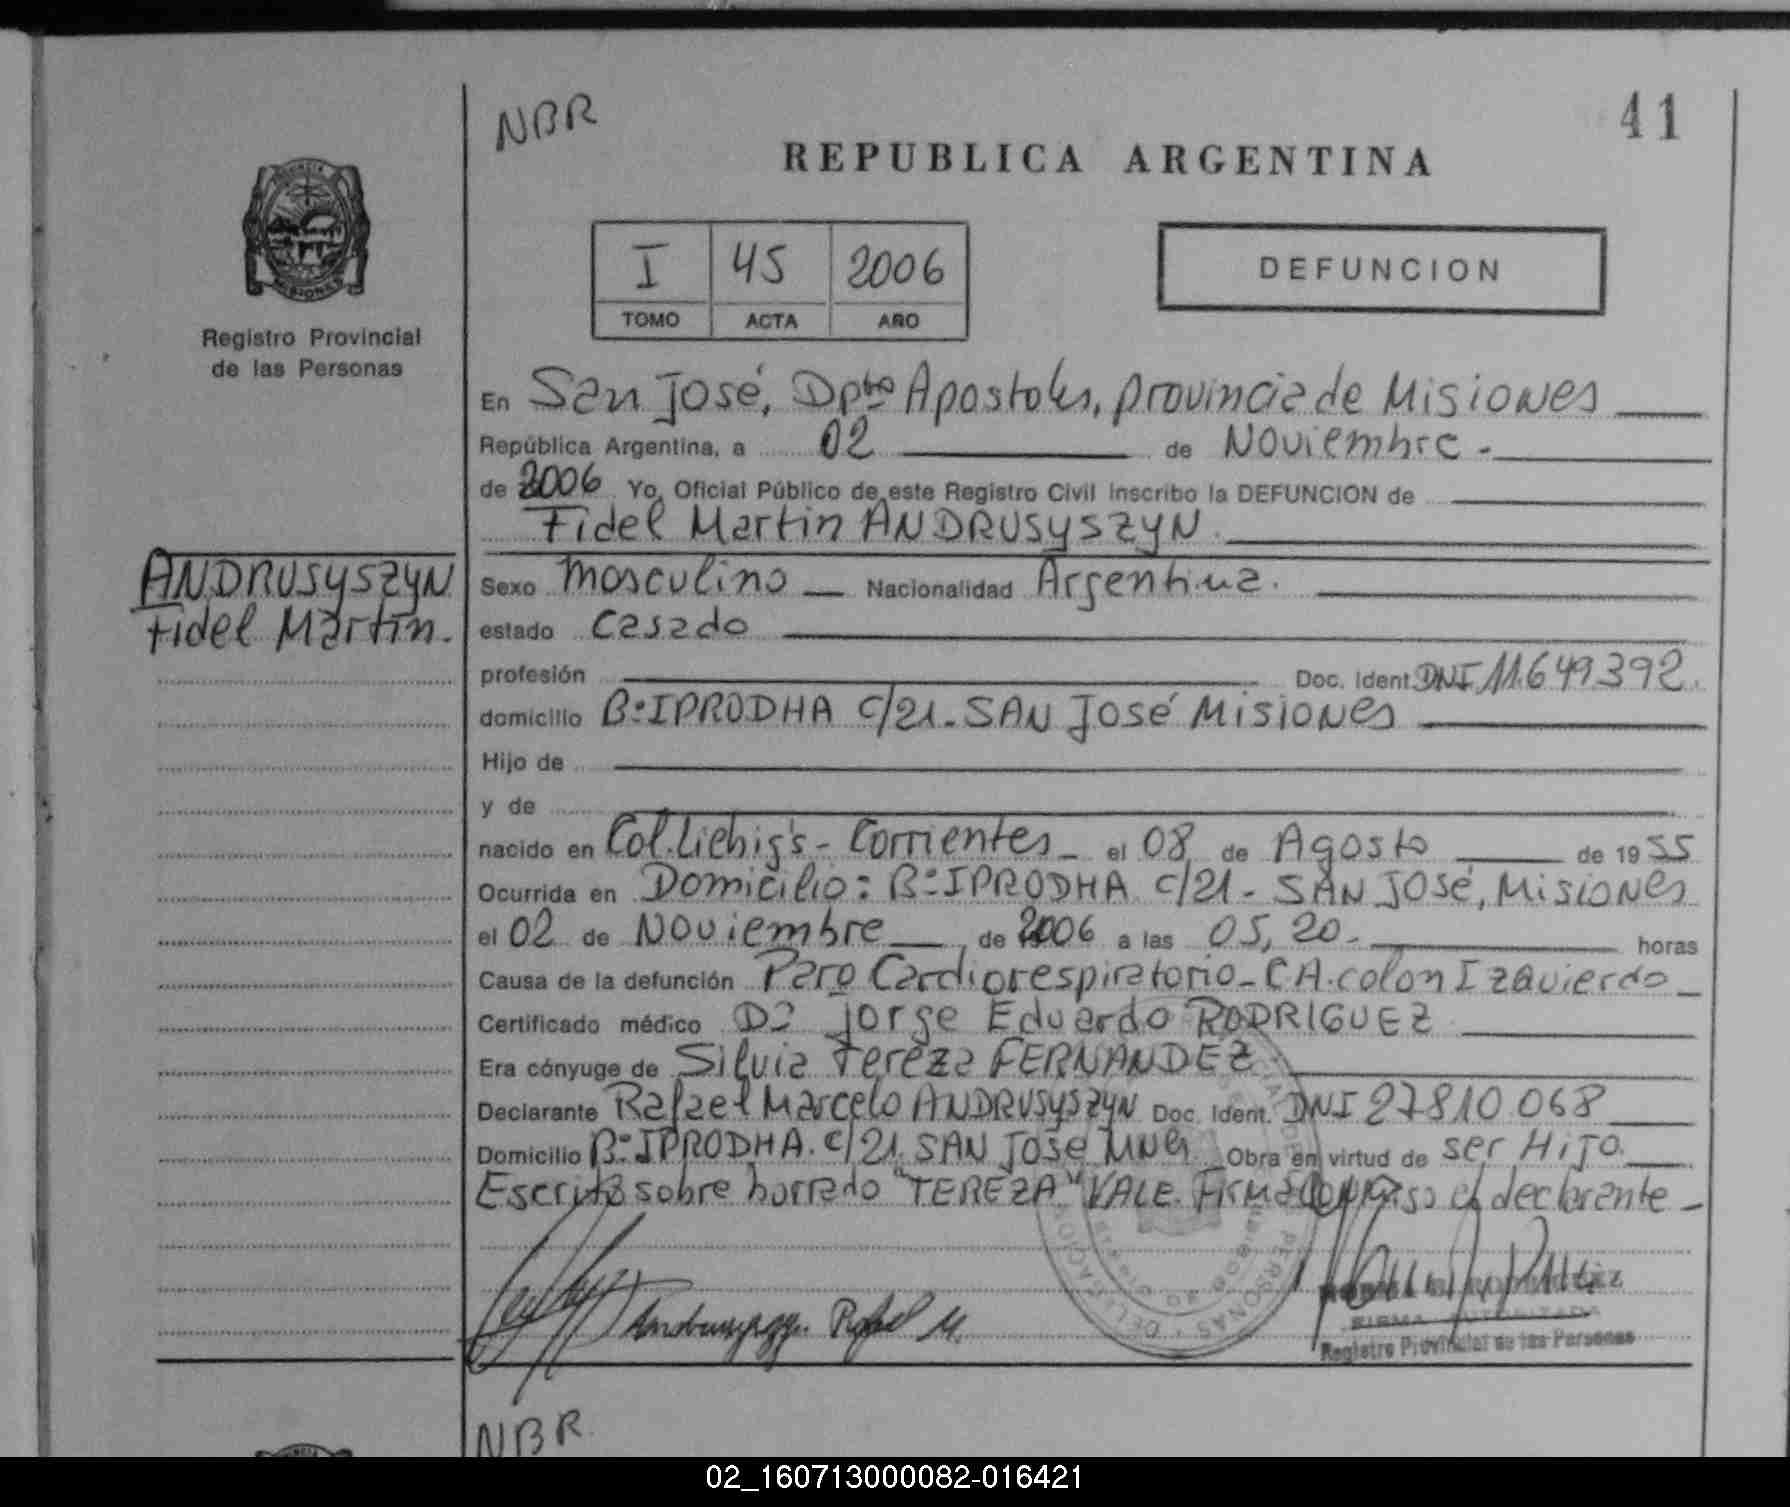 NBR
41
REPUBLICA ARGENTINA
MISIONES
Registro Provincial
de las Personas
I 45 2006
TOMO ACTA AÑO
DEFUNCION
En San José, Dpto Apostoles, provincia de Misiones
República Argentina, a 02 de Noviembre.
de 2006 Yo, Oficial Público de este Registro Civil inscribo la DEFUNCION de
Fidel Martin ANDRUSYSZYN.
ANDRUSYSZYN
Fidel Martin.
Sexo Masculino Nacionalidad Argentina.
estado Casado
profesión Doc. Ident. DNI 11.649.392.
domicilio B:IPRODHA C/21. SAN José Misiones
Hijo de
y de
nacido en Col. Liebig's - Corrientes el 08 de Agosto de 1955
Ocurrida en Domicilio: B:IPRODHA C/21 - SAN JOSé, Misiones
el 02 de Noviembre de 2006 a las 05,20. horas
Causa de la defunción Paro Cardiorespiratorio - CA. colon Izquierdo
Certificado médico Dr Jorge Eduardo RODRIGUEZ
Era cónyuge de Silvia Tereza FERNANDEZ
Declarante Rafael Marcelo ANDRUSYSZYN Doc. Ident. DNI 27810.068
Domicilio B:IPRODHA. C/21. SAN Jose Obra en virtud de ser Hijo.
Escrito sobre borrado "TEREZA" VALE. Firma el declarante
Rafael M.
Registro Provincial de las Personas
NBR
02_160713000082-016421